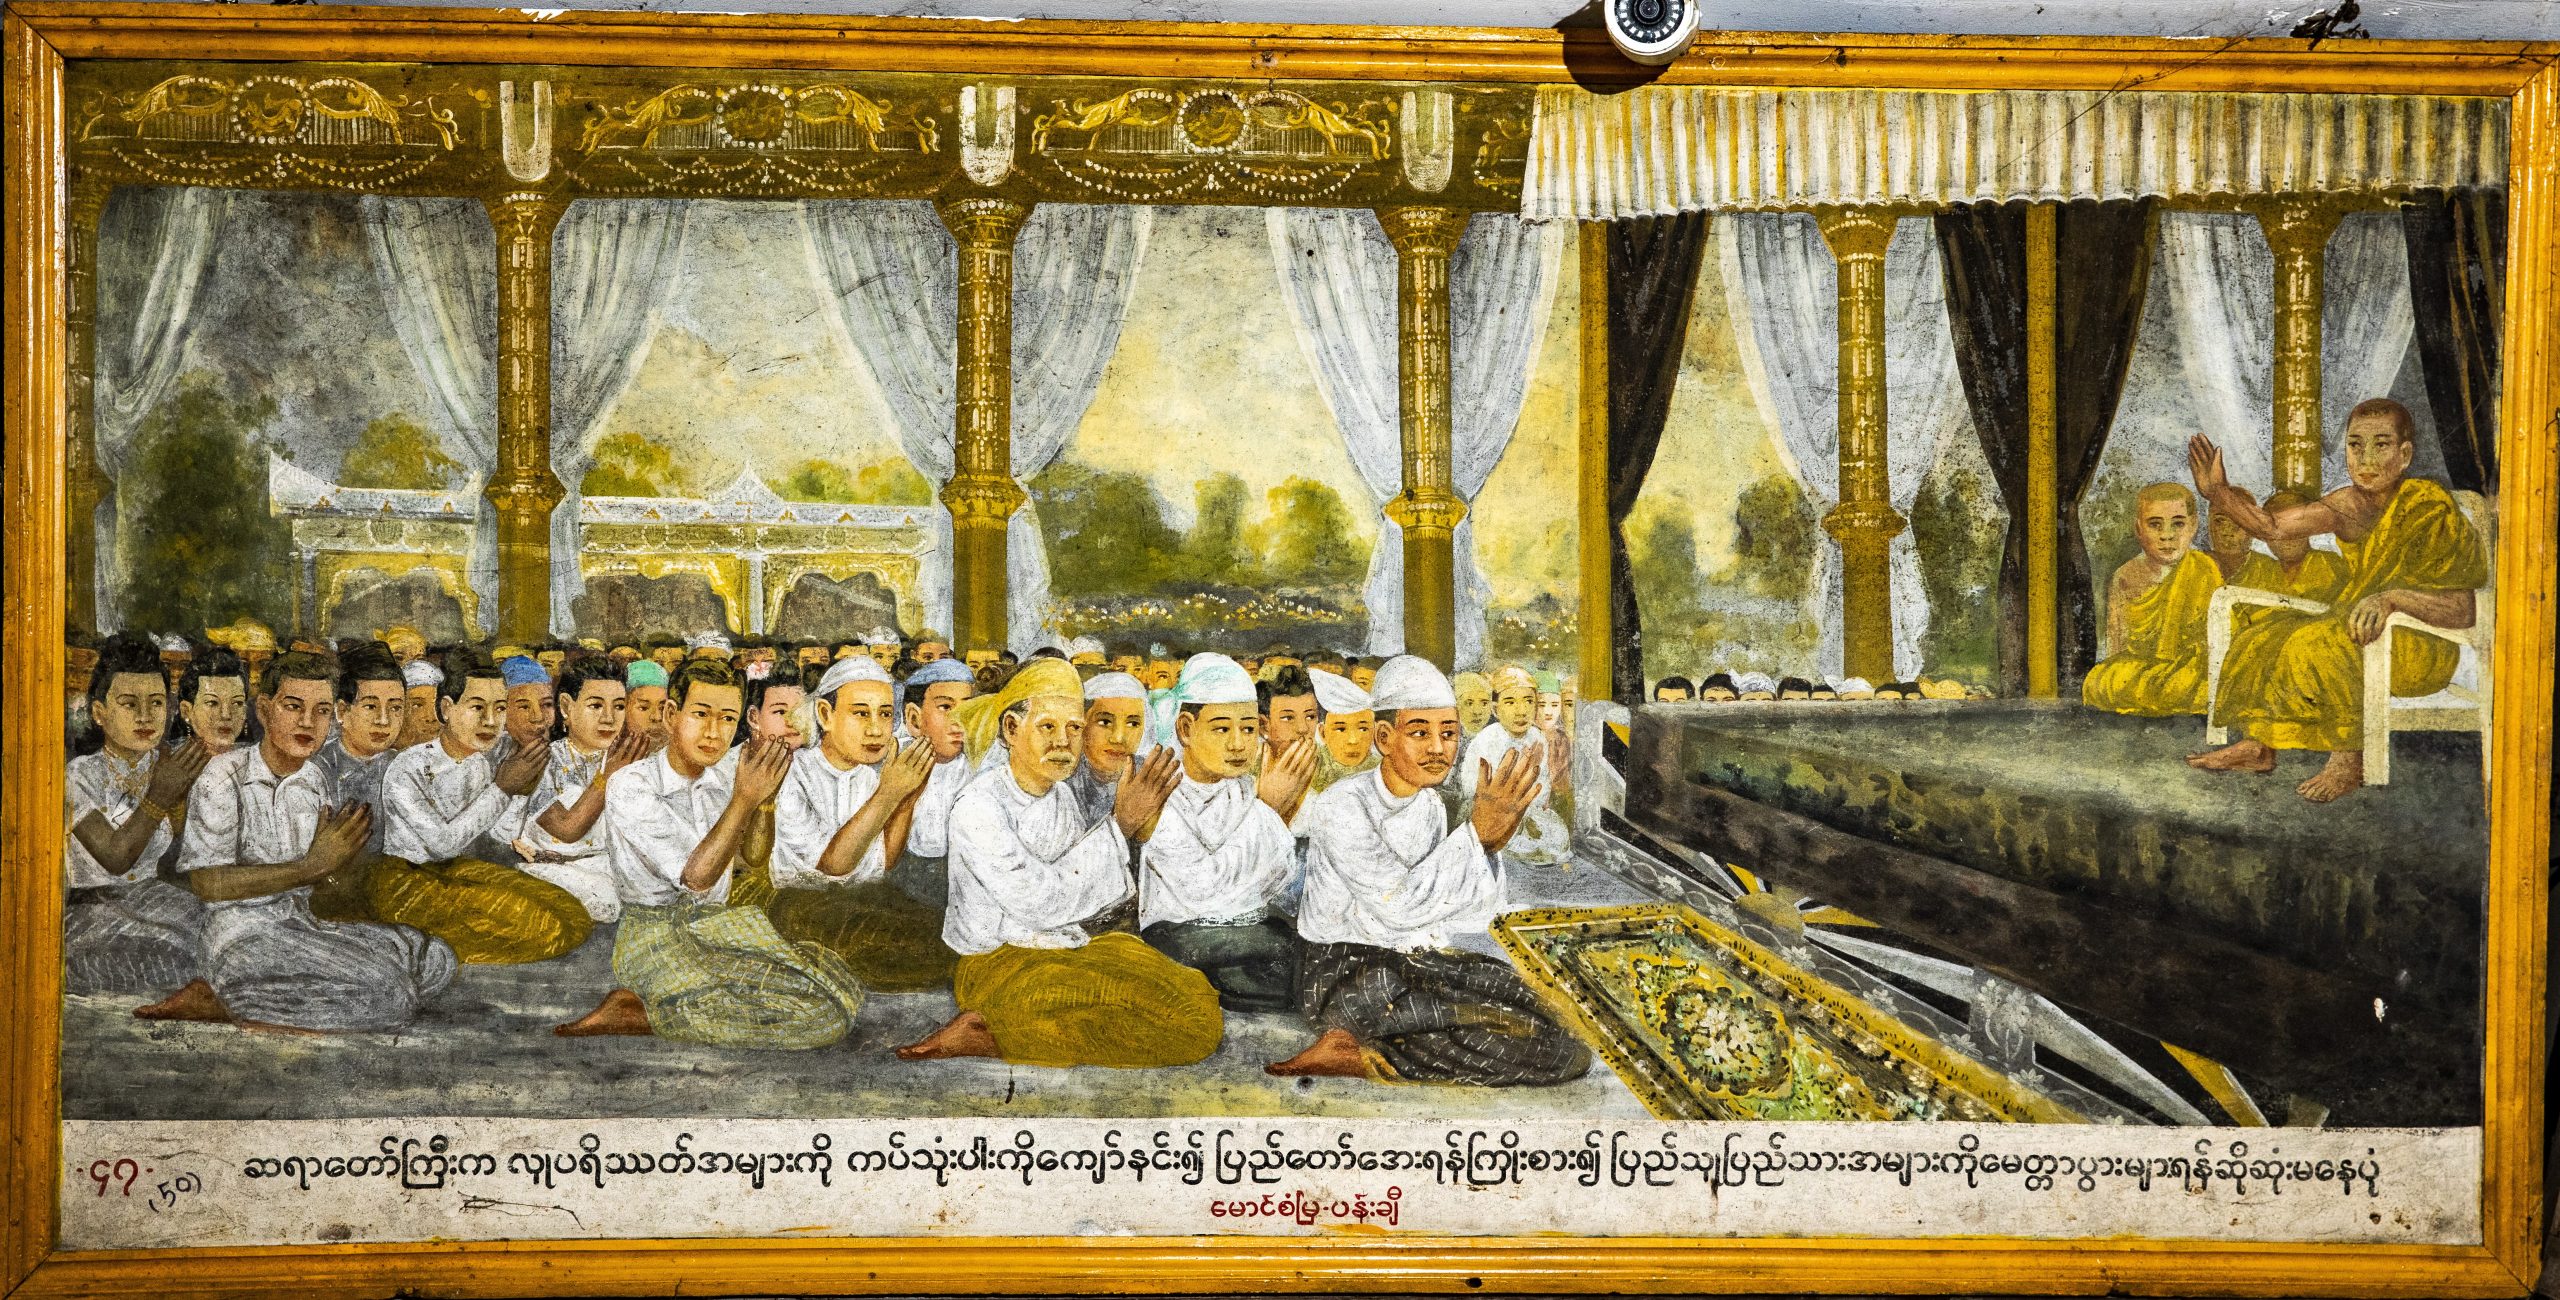 ၄၇
(50)
ဆရာတော်ကြီးက လူပရိဿတ်အများကို ကပ်သုံးပါးကိုကျော်နင်း၍ ပြည်တော်အေးရန်ကြိုးစား၍ ပြည်သူပြည်သားအများကိုမေတ္တာပွားများရန်ဆိုဆုံးမနေပုံ
မောင်စံမြ-ပန်းချီ